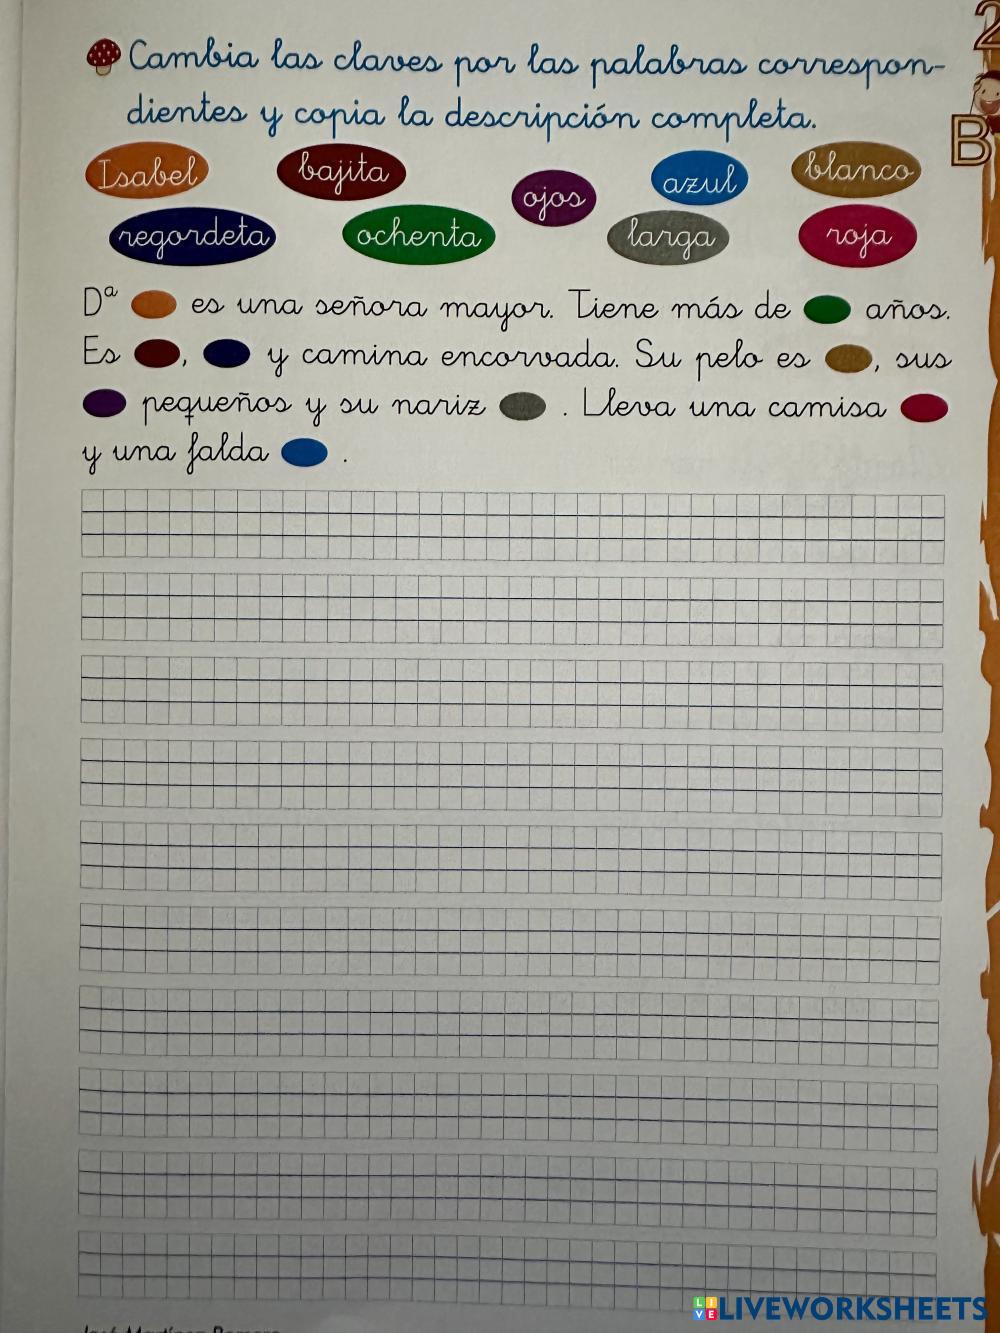 2
Cambia las claves por las palabras correspon-
dientes y copia la descripción completa.
B
Isabel bajita ojos azul blanco
regordeta ochenta larga roja
Dª es una señora mayor. Tiene más de años.
Es , y camina encorvada. Su pelo es , sus
pequeños y su nariz . Lleva una camisa
y una falda .
LIVEWORKSHEETS